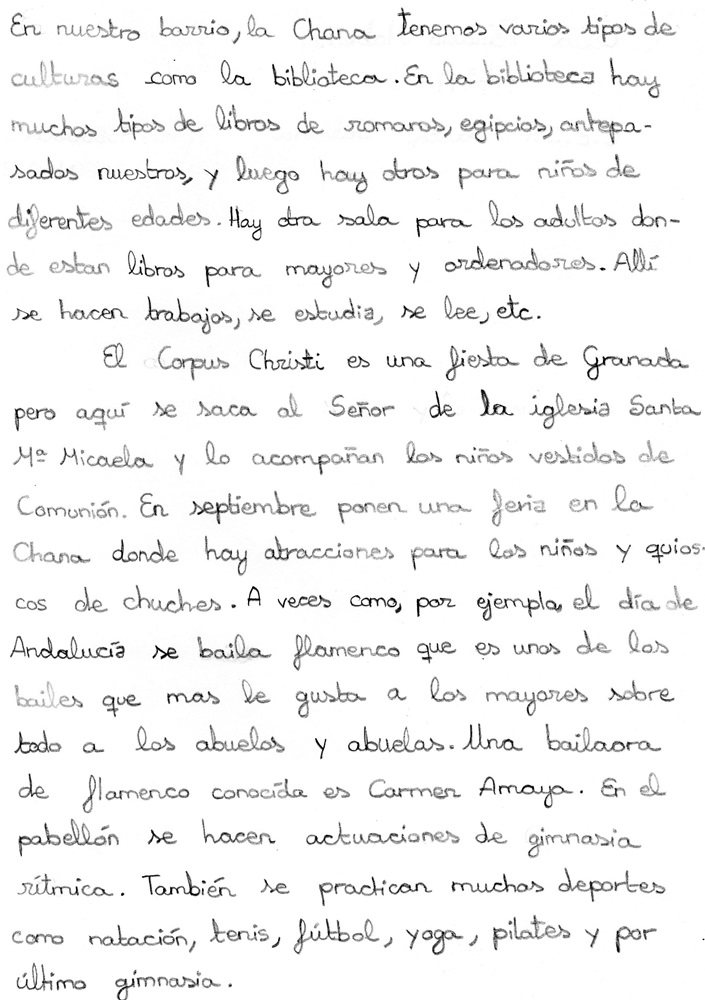 En nuestro barrio, la Chana tenemos varios tipos de
culturas como la biblioteca. En la biblioteca hay
muchos tipos de libros de romaros, egipcios, antepa-
sados nuestros, y luego hay otros para niños de
diferentes edades. Hay otra sala para los adultos don-
de estan libros para mayores y ordenadores. Allí
se hacen trabajos, se estudia, se lee, etc.
El Corpus Christi es una fiesta de Granada
pero aquí se saca al Señor de la iglesia Santa
Mª Micaela y lo acompañan los niños vestidos de
Comunión. En septiembre ponen una feria en la
Chana donde hay atracciones para los niños y quios-
cos de chuches. A veces como, por ejemplo, el día de
Andalucía se baila flamenco que es unos de los
bailes que mas le gusta a los mayores sobre
todo a los abuelos y abuelas. Una bailaora
de flamenco conocida es Carmen Amaya. En el
pabellón se hacen actuaciones de gimnasia
rítmica. También se practican muchos deportes
como natación, tenis, fútbol, yoga, pilates y por
último gimnasia.